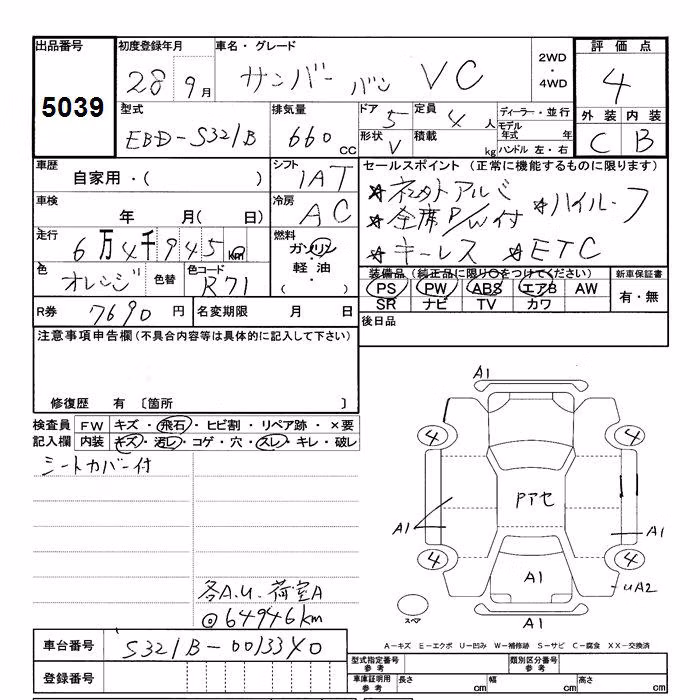 出品番号 初度登録年月 車名・グレード 2WD ・ 4WD 評価点
5039 28 9月 サンバー バン VC 4
型式 排気量 ドア 5 定員 4 人 ディーラー・並行 外装 内装
EBD-S321B 660 CC 形状 V 積載 kg モデル年式 年 C B
ハンドル 左・右
車歴 自家用・( ) シフト 1AT セールスポイント (正常に機能するものに限ります)
車検 年 月( 日) 冷房 AC
☆社外アルミ
☆全席P/W付 ☆ハイルーフ
☆キーレス ☆ETC
走行 6万4千945km 燃料 ガソリン・軽油・( )
色 オレンジ 色替 色コード R71
装備品 (純正品に限り○をつけてください) 新車保証書
PS PW ABS エアB AW 有・無
SR ナビ TV カワ
R券 7690 円 名変期限 月 日 後日品
注意事項申告欄 (不具合内容等は具体的に記入して下さい)
修復歴 有 〔箇所 〕
検査員 FW キズ・飛石・ヒビ割・リペア跡・×要
記入欄 内装 キズ・汚レ・コゲ・穴・スレ・キレ・破レ
シートカバー付
各A.U.荷室A
◎64946km
A1
4 4
Pアセ
A1 A1
4 4
A1 UA2
スペア A1
A-キズ E-エクボ U-凹み W-補修跡 S-サビ C-腐食 XX-交換済
車台番号 S321B-0013340
登録番号
型式指定番号 参考 類別区分番号 参考
車庫証明用 参考 長さ cm 幅 cm 高さ cm